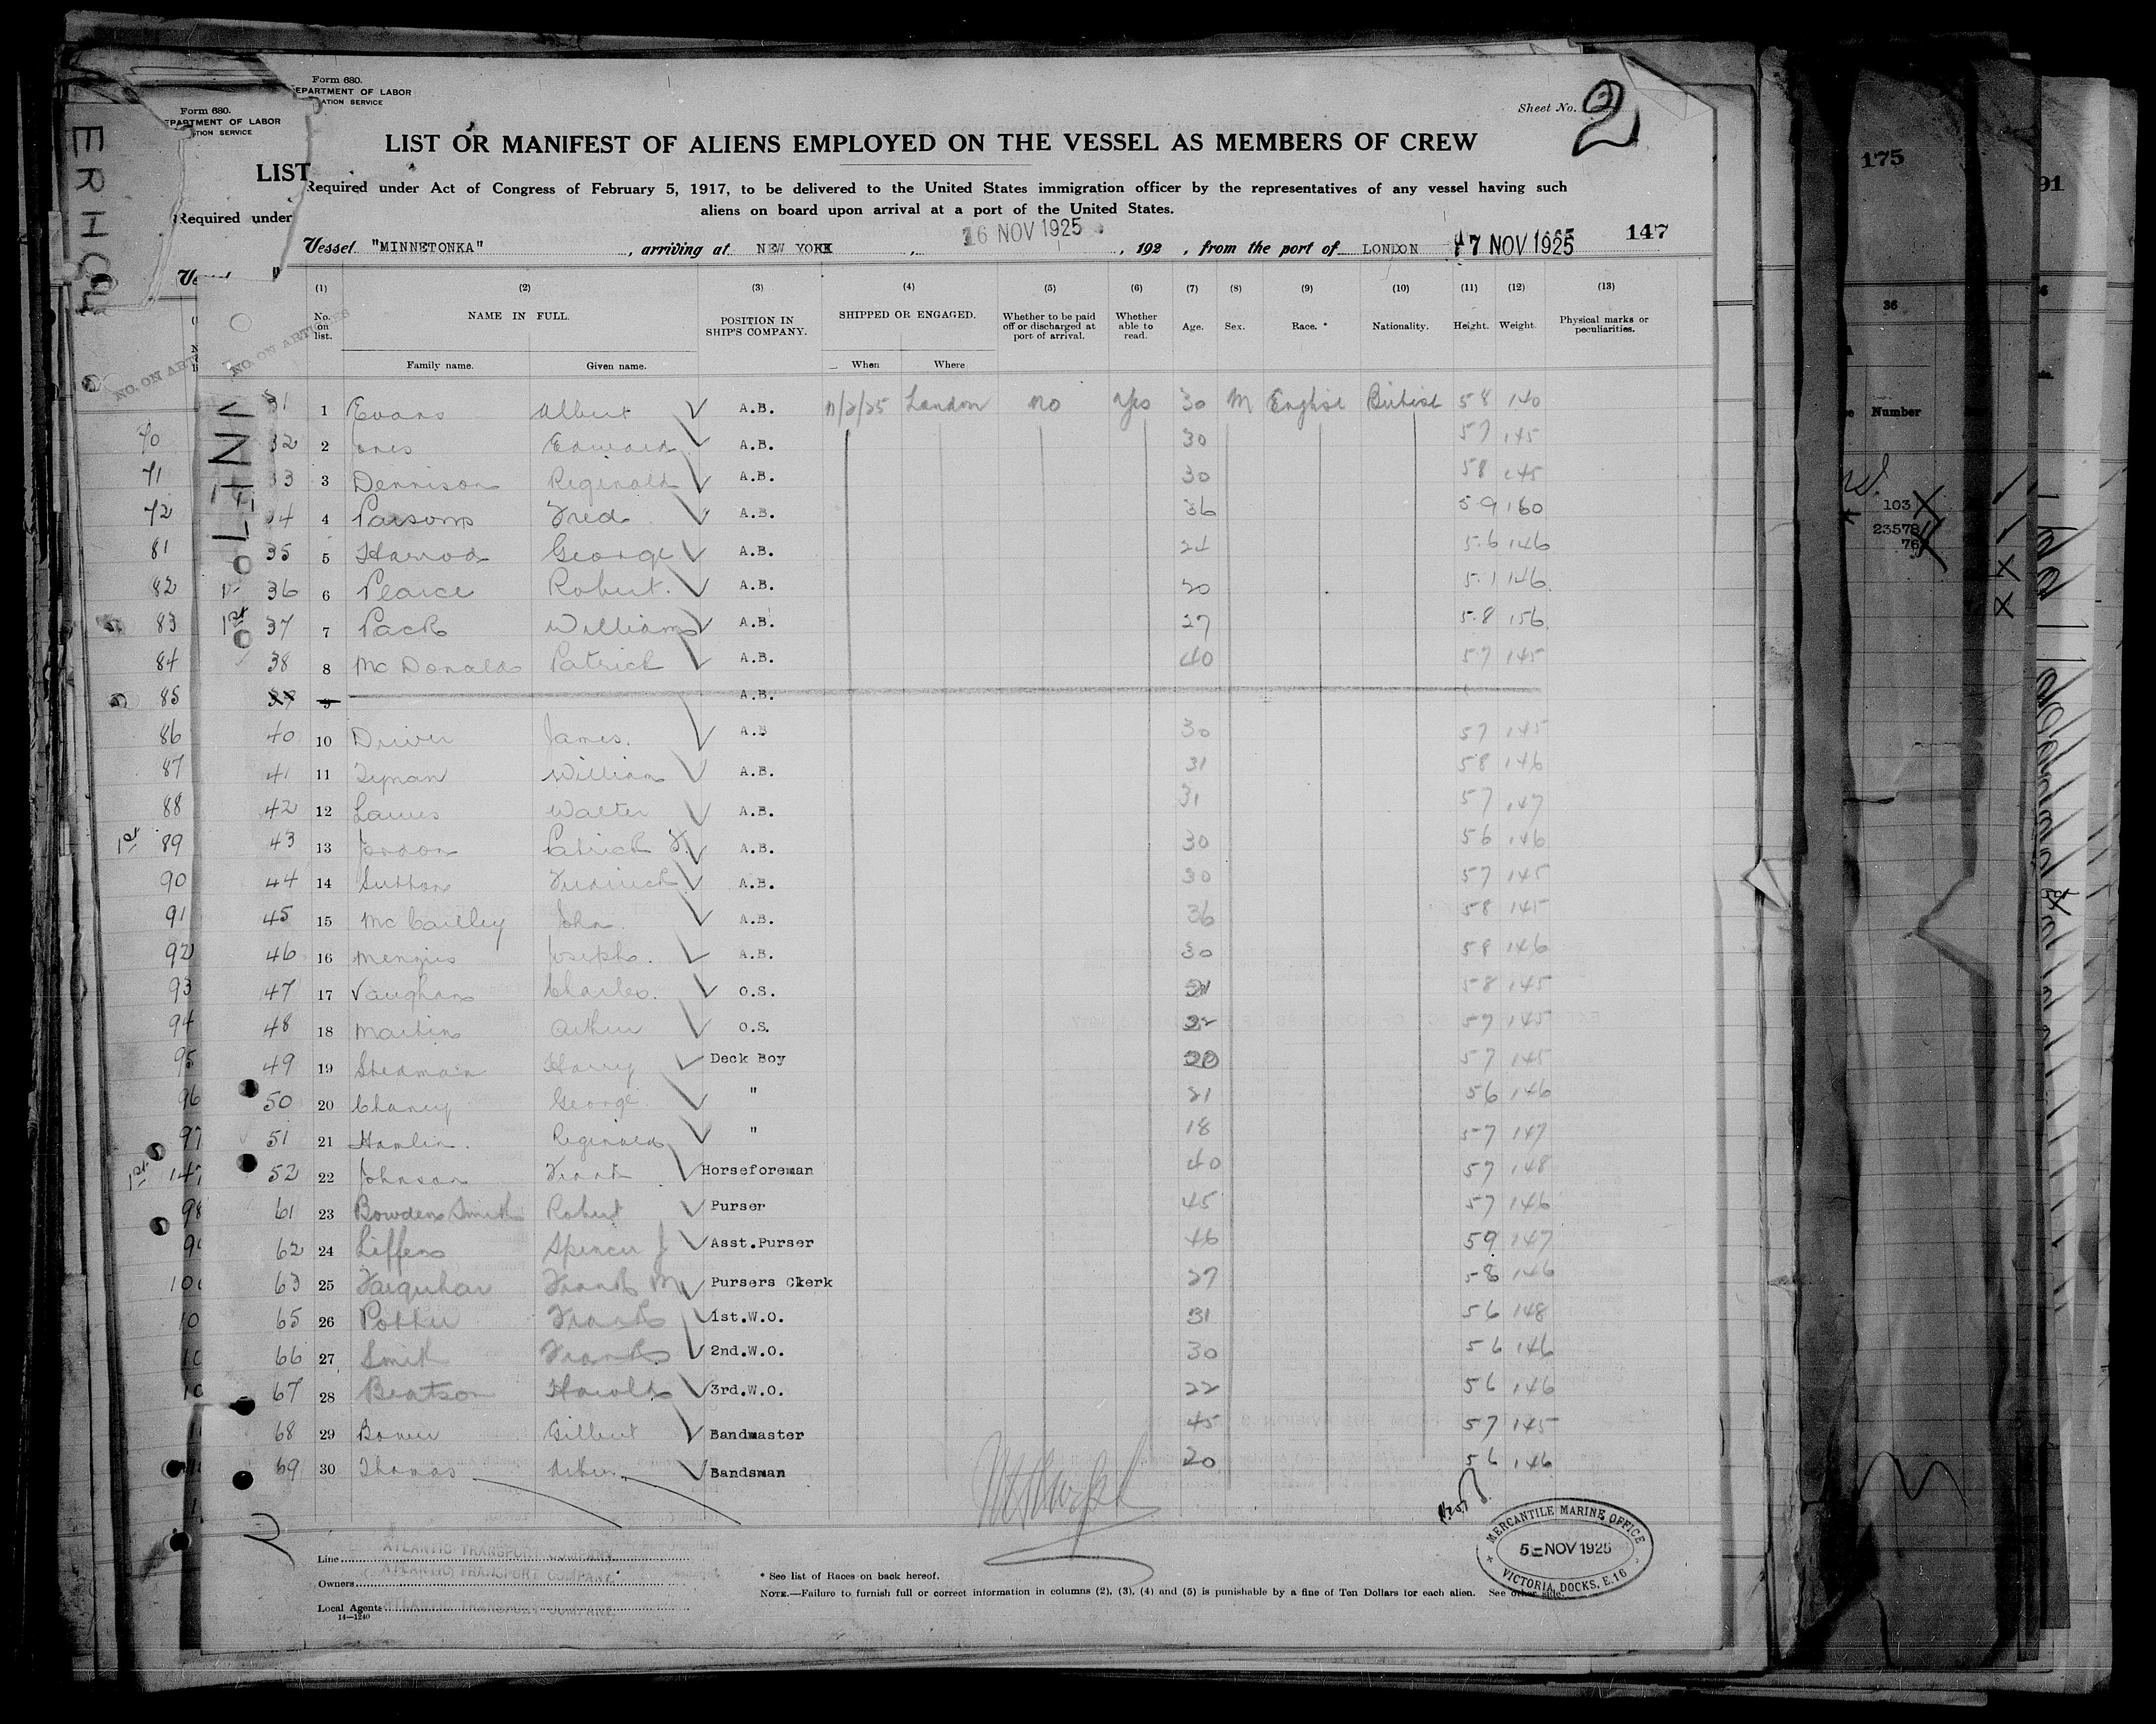 Form 680.
EPARTMENT OF LABOR
ATION SERVICE
Form 680.
EPARTMENT OF LABOR
TION SERVICE
Sheet No. 2
LIST OR MANIFEST OF ALIENS EMPLOYED ON THE VESSEL AS MEMBERS OF CREW
LIST
Required under Act of Congress of February 5, 1917, to be delivered to the United States immigration officer by the representatives of any vessel having such
aliens on board upon arrival at a port of the United States.
Required under
Vessel "MINNETONKA", arriving at NEW YORK, 16 NOV 1925, 192 , from the port of LONDON 7 NOV 1925 147
(1) (2) (3) (4) (5) (6) (7) (8) (9) (10) (11) (12) (13)
No. on list. NAME IN FULL. POSITION IN SHIP'S COMPANY. SHIPPED OR ENGAGED. Whether to be paid off or discharged at port of arrival. Whether able to read. Age. Sex. Race. * Nationality. Height. Weight. Physical marks or peculiarities.
Family name. Given name. When Where
NO. ON ARTICLES
31 1 Evans Albert A.B. London no Yes 30 M English British 5 8 140
70 32 2 ones Edward A.B. 30 5 7 145
71 33 3 Dennison Reginald A.B. 30 5 8 145
72 34 4 Parsons Fred A.B. 36 5 9 160
81 35 5 Harrod George A.B. 24 5.6 146
82 36 6 Pearce Robert. A.B. 20 5.1 146
83 1st 37 7 Pack William A.B. 27 5.8 156
84 38 8 McDonald Patrick A.B. 40 5.7 145
85 39 9 A.B.
86 40 10 Driver James. A.B 30 5 7 145
87 41 11 William A.B. 31 5 8 146
88 42 12 Walter A.B. 31 5 7 147
1st 89 43 13 Jordon Patrick F. A.B. 30 5 6 146
90 44 14 Sutton Fredrick A.B. 30 5 7 145
91 45 15 John A.B. 36 5 8 145
92 46 16 Menzies Joseph. A.B. 30 5 8 146
93 47 17 Vaughan Charles. O.S. 5 8 145
94 48 18 Martin Arthur O.S. 5 7 145
95 49 19 Stedman Harry Deck Boy 20 5 7 145
96 50 20 Chaney George " 21 5 6 146
97 51 21 Hamlin. Reginald " 18 5 7 147
1st 147 52 22 Johnson Frank Horseforeman 40 5 7 148
98 61 23 Bowden Smith Robert Purser 45 5 7 146
62 24 Liffen Spencer J Asst.Purser 46 5 9 147
63 25 Farquhar Frank M Pursers Clerk 27 5 8 146
65 26 Potter Frank 1st.W.O. 31 5 6 148
66 27 Smith Frank 2nd.W.O. 30 5 6 146
67 28 Beatson Harold 3rd.W.O. 22 5 6 146
68 29 Gilbert Bandmaster 45 5 7 145
69 30 Thomas Bandsman 20 5 6 146
Line ATLANTIC TRANSPORT COMPANY
Owners ATLANTIC TRANSPORT COMPANY
Local Agents ATLANTIC TRANSPORT COMPANY
14—1240
* See list of Races on back hereof.
NOTE.—Failure to furnish full or correct information in columns (2), (3), (4) and (5) is punishable by a fine of Ten Dollars for each alien. See other side.
MERCANTILE MARINE OFFICE
5 NOV 1925
VICTORIA DOCKS, E.16
175
91
36
Number
103
23578
76